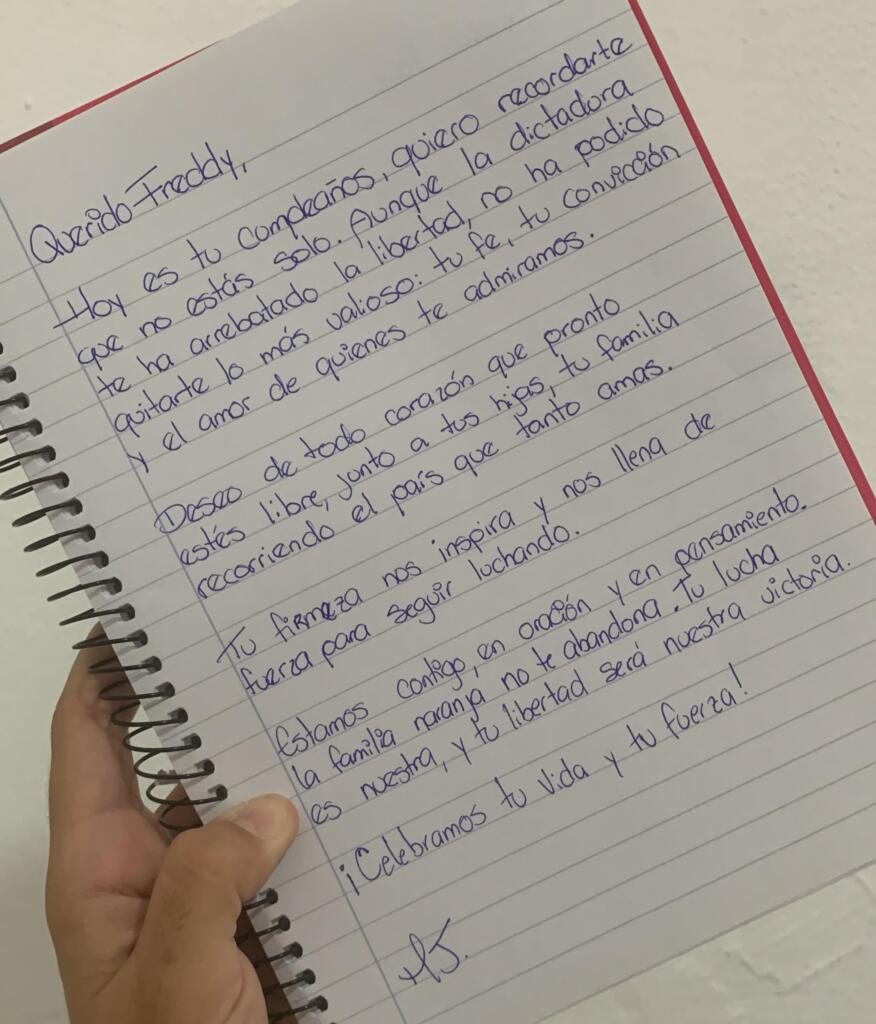 Querido Freddy,
Hoy es tu cumpleaños, quiero recordarte
que no estás solo. Aunque la dictadora
te ha arrebatado la libertad, no ha podido
quitarte lo más valioso: tu fe, tu convicción
y el amor de quienes te admiramos.
Deseo de todo corazón que pronto
estés libre, junto a tus hijas, tu familia
recorriendo el país que tanto amas.
Tu firmeza nos inspira y nos llena de
fuerza para seguir luchando.
Estamos contigo, en oración y en pensamiento.
la familia naranja no te abandona. Tu lucha
es nuestra, y tu libertad será nuestra victoria.
¡Celebramos tu vida y tu fuerza!